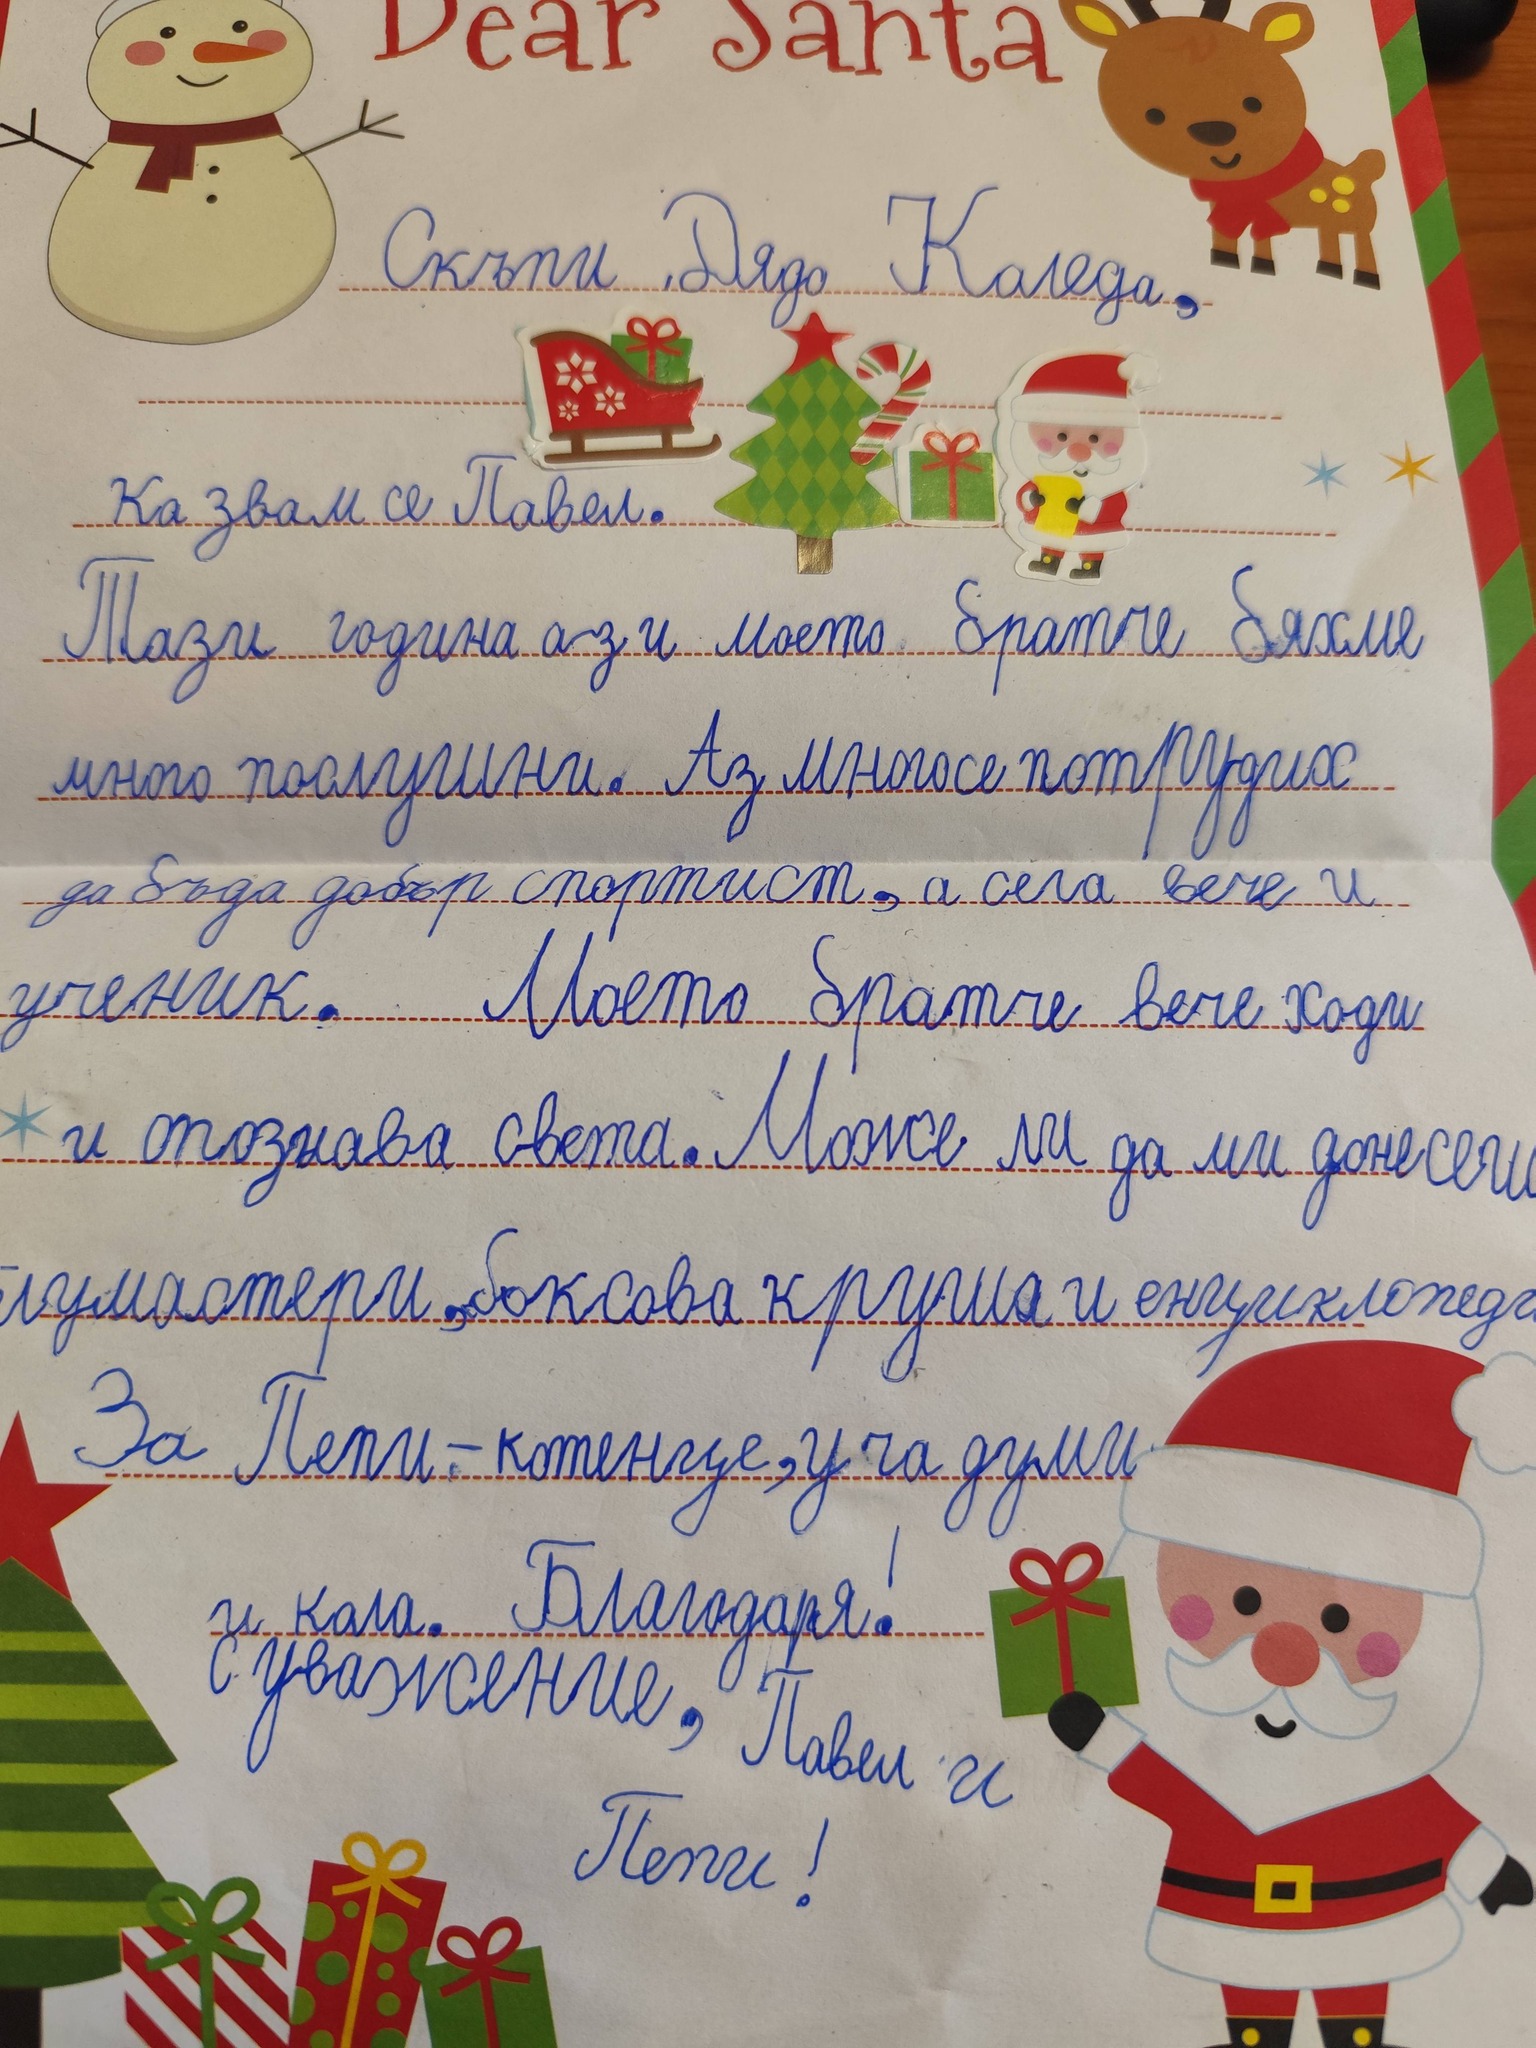 Dear Santa
Скъпи Дядо Коледа,
казвам се Павел.
Тази година аз и моето братче бяхме
много послушни. Аз много се потрудих
да бъда добър спортист, а сега вече и
ученик. Моето братче вече ходи
и опознава света. Може ли да ми донесеш
блумастери, боксова круша и енциклопедия
За Пепи - котенце, уча думи
и кола. Благодаря!
С уважение, Павел и
Пепи!